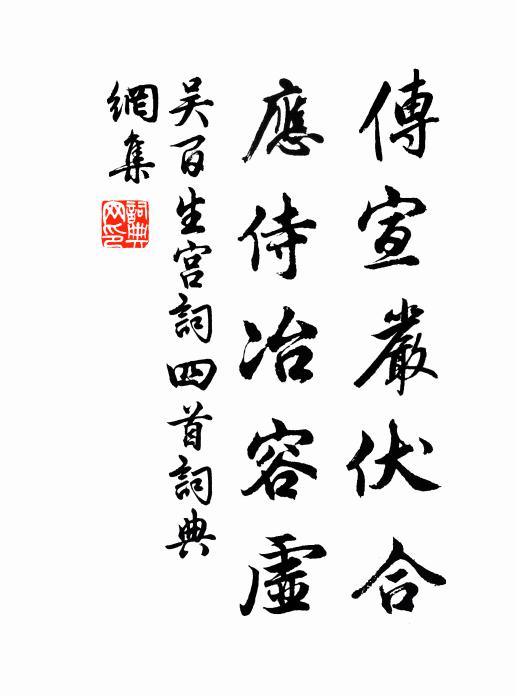 傳宣嚴伏合
應侍冶容虛
吴百生宫詞四首詞典
網集
詞典
网印